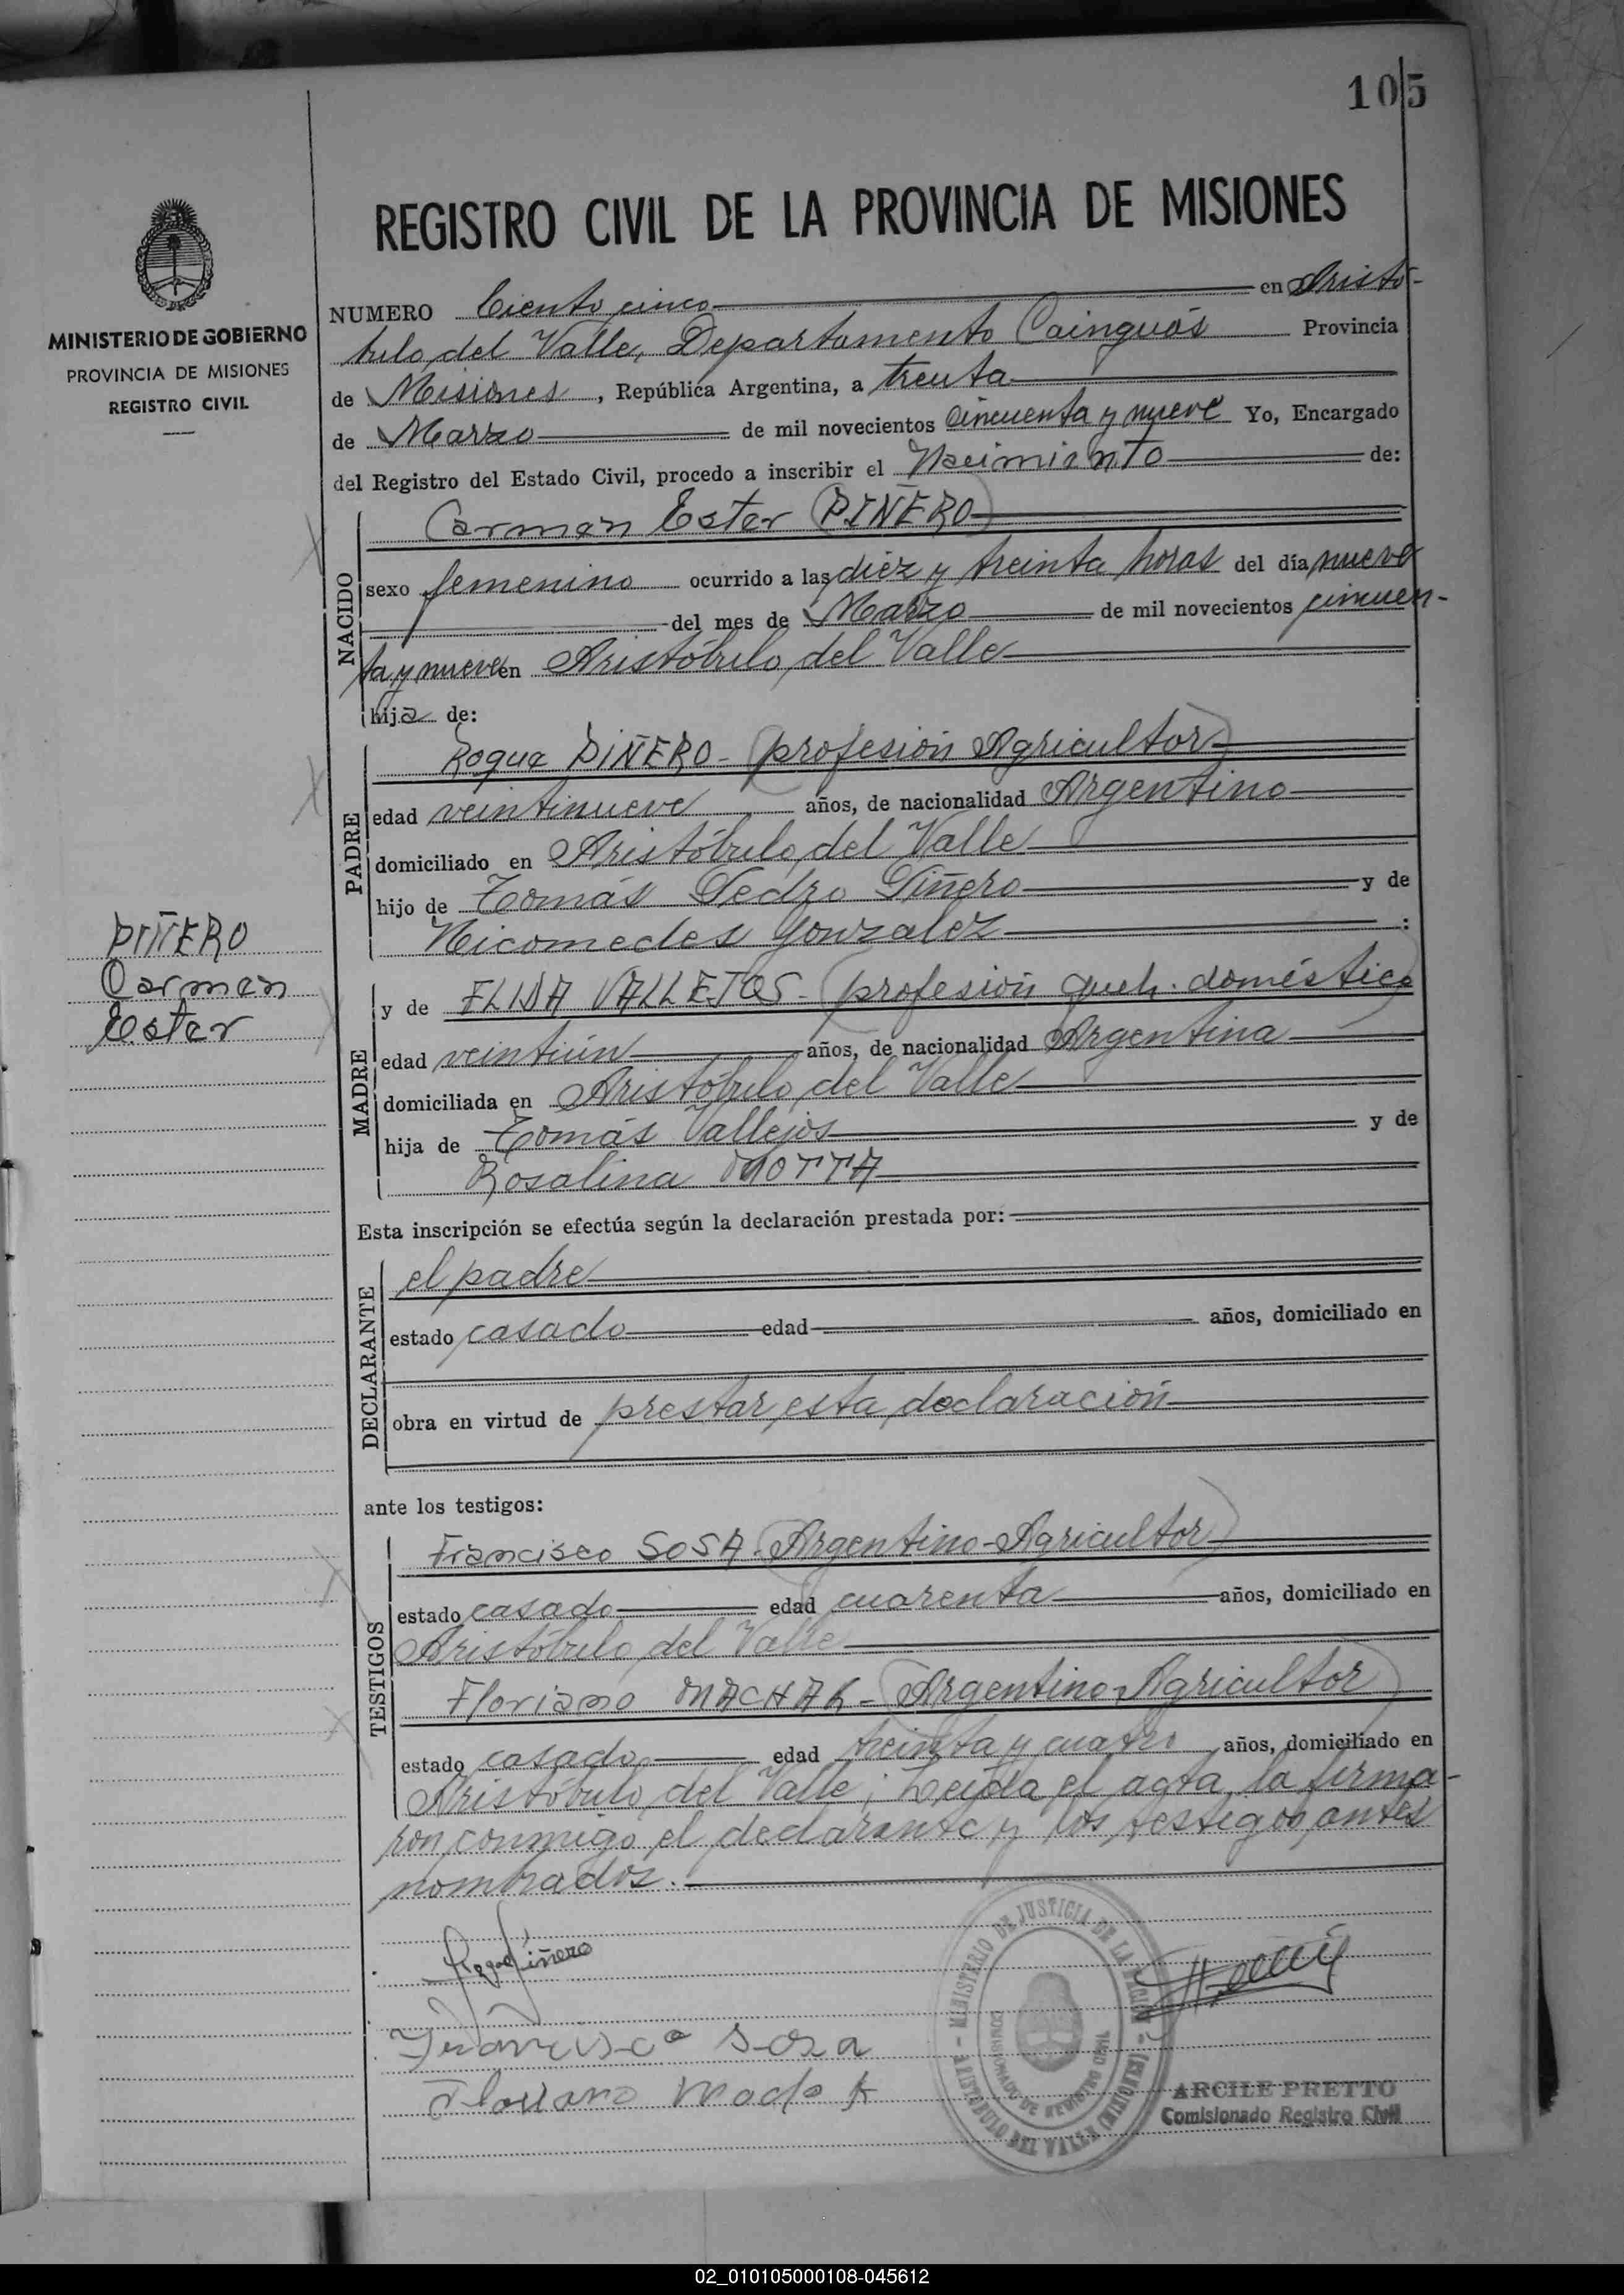 105
REGISTRO CIVIL DE LA PROVINCIA DE MISIONES
MINISTERIO DE GOBIERNO
PROVINCIA DE MISIONES
REGISTRO CIVIL
NUMERO Ciento cinco en Aristó-
bulo del Valle, Departamento Cainguás Provincia
de Misiones, República Argentina, a treinta
de Marzo de mil novecientos cincuenta y nueve Yo, Encargado
del Registro del Estado Civil, procedo a inscribir el Nacimiento de:
NACIDO
Carmen Ester (PIÑERO)
sexo femenino ocurrido a las diez y treinta horas del día nueve
del mes de Marzo de mil novecientos cincuen-
ta y nueve en Aristóbulo del Valle
hija de:
PADRE
Roque PIÑERO - (profesión Agricultor)
edad veintinueve años, de nacionalidad Argentino
domiciliado en Aristóbulo del Valle
hijo de Tomás Pedro Piñero y de
Nicomedes Gonzalez :
PIÑERO
Carmen
Ester
MADRE
y de ELIDA VALLEJOS - (profesión queh. doméstico)
edad veintiún años, de nacionalidad Argentina
domiciliada en Aristóbulo del Valle
hija de Tomás Vallejos y de
Rosalina MOTTA
Esta inscripción se efectúa según la declaración prestada por:
DECLARANTE
el padre
estado casado edad años, domiciliado en
obra en virtud de prestar esta declaración
ante los testigos:
TESTIGOS
Francisco SOSA - (Argentino - Agricultor)
estado casado edad cuarenta años, domiciliado en
Aristóbulo del Valle
Floriano MACHAK - (Argentino - Agricultor)
estado casado edad treinta y cuatro años, domiciliado en
Aristóbulo del Valle; Leída el acta, la firma-
ron conmigo el declarante y los testigos antes
nombrados.
Roque Piñero
Francisco Sosa
Floriano
MINISTERIO DE JUSTICIA DE LA NACION - ARISTOBULO DEL VALLE (MISIONES) -
COMISIONADO DE REGISTRO CIVIL
ARCILE PRETTO
Comisionado Registro Civil
02_010105000108-045612